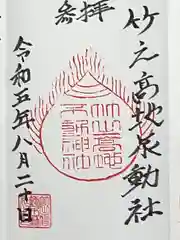 奉拝
竹之高地不動社
令和五年八月二十日